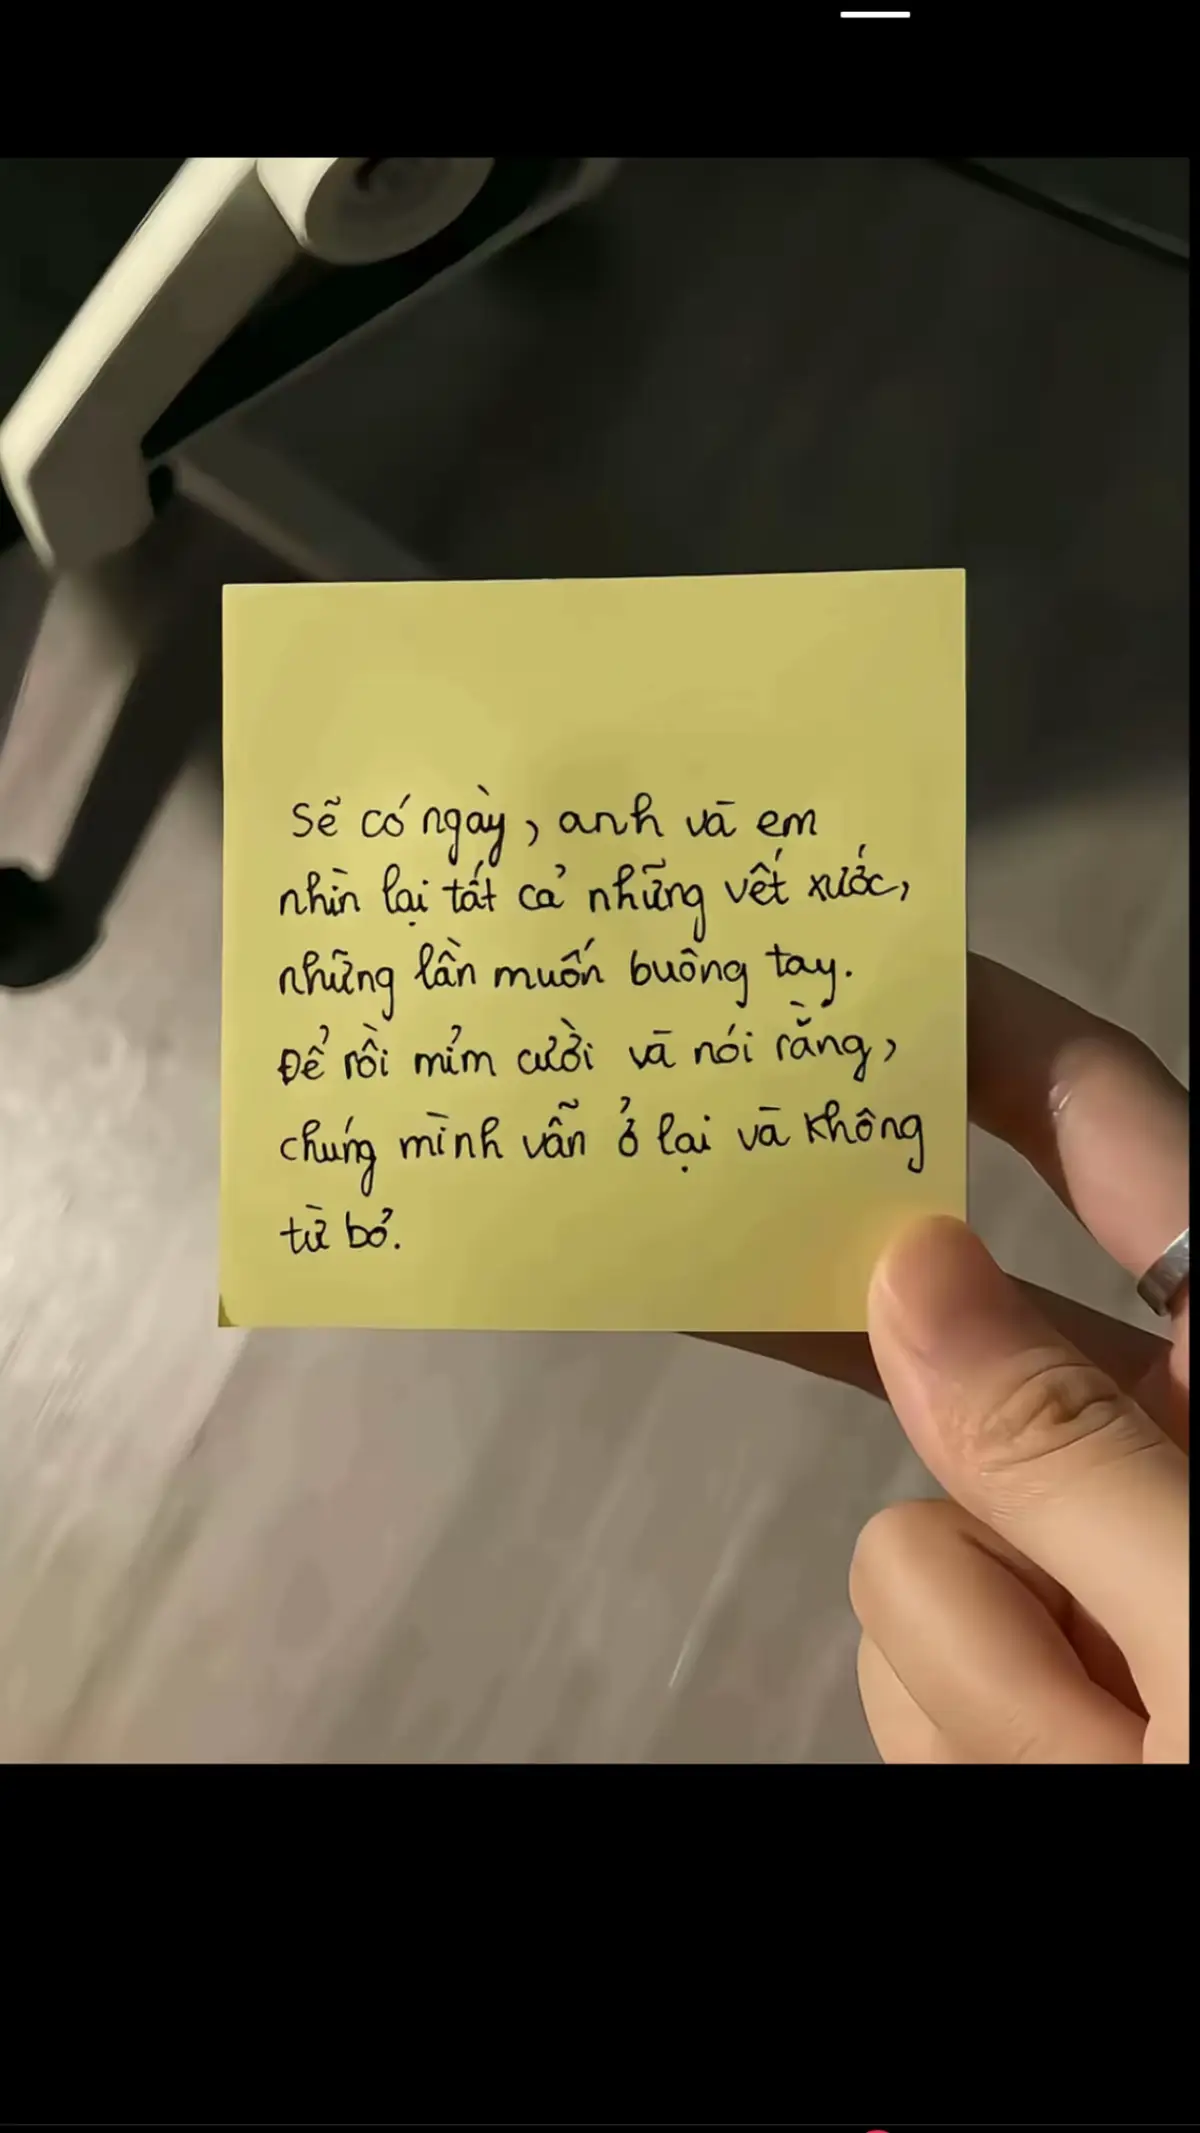 Sẽ có ngày, anh và em
nhìn lại tất cả những vết xước,
những lần muốn buông tay.
Để rồi mỉm cười và nói rằng,
chúng mình vẫn ở lại và không
từ bỏ.